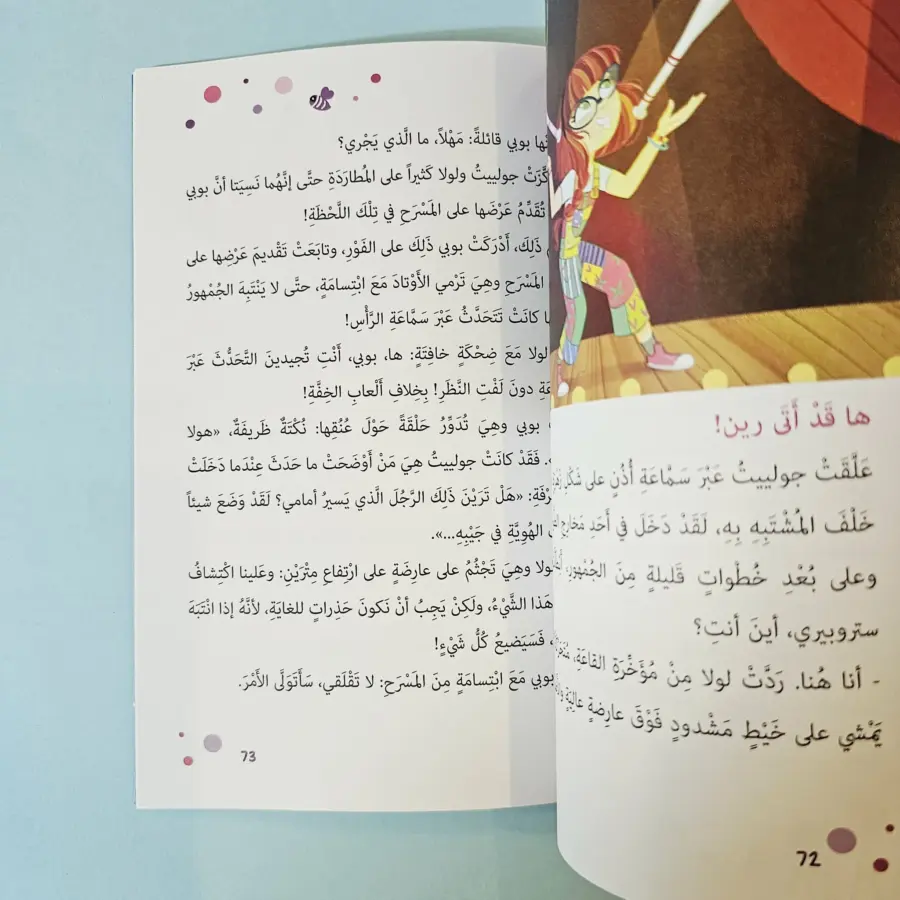 ها قَدْ أَتَى رين!
عَلَّقَتْ جولييتُ عَبْرَ سَمَّاعَةِ أُذُنٍ على شَكْلِ
خَلْفَ المُشْتَبِهِ بِهِ، لَقَدْ دَخَلَ في أَحَدِ مَخارِجِ
وعلى بُعْدِ خُطُواتٍ قَليلةٍ مِنَ الجُمْهورِ،
ستروبيري، أينَ أنتِ؟
- أنا هُنا. رَدَّتْ لولا مِنْ مُؤَخَّرَةِ القاعَةِ،
يَمْشي على خَيْطٍ مَشْدودٍ فَوْقَ عارِضةٍ عالِيَةٍ
72
بوبي قائلةً: مَهْلاً، ما الَّذي يَجْري؟
جولييتُ ولولا كَثيراً على المُطارَدَةِ حتَّى إنَّهُما نَسِيَتا أنَّ بوبي
تُقَدِّمُ عَرْضَها على المَسْرَحِ في تِلْكَ اللَّحْظَةِ!
ذَلِكَ، أَدْرَكَتْ بوبي ذَلِكَ على الفَوْرِ، وتابَعَتْ تَقْديمَ عَرْضِها على
المَسْرَحِ وهِيَ تَرْمي الأَوْتادَ مَعَ ابْتِسامَةٍ، حتَّى لا يَنْتَبِهَ الجُمْهورُ
كانَتْ تَتَحَدَّثُ عَبْرَ سَمَّاعَةِ الرَّأْسِ!
لولا مَعَ ضِحْكَةٍ خافِتَةٍ: ها، بوبي، أَنْتِ تُجيدينَ التَّحَدُّثَ عَبْرَ
دونَ لَفْتِ النَّظَرِ! بِخِلافِ أَلْعابِ الخِفَّةِ!
بوبي وهِيَ تُدَوِّرُ حَلْقَةً حَوْلَ عُنُقِها: نُكْتَةٌ ظَريفَةٌ، «هولا
». فَقَدْ كانَتْ جولييتُ هِيَ مَنْ أَوْضَحَتْ ما حَدَثَ عِنْدَما دَخَلَتْ
«هَلْ تَرَيْنَ ذَلِكَ الرَّجُلَ الَّذي يَسيرُ أمامي؟ لَقَدْ وَضَعَ شيئاً
الهُوِيَّةِ في جَيْبِهِ...».
لولا وهِيَ تَجْثُمُ على عارِضَةٍ على ارْتِفاعِ مِتْرَيْنِ: وعَلَينا اكْتِشافُ
هَذا الشَّيْءُ، ولَكِنْ يَجِبُ أنْ نَكونَ حَذِراتٍ للغايَةِ، لأنَّهُ إذا انْتَبَهَ
، فَسَيَضيعُ كُلُّ شَيْءٍ!
بوبي مَعَ ابْتِسامَةٍ مِنَ المَسْرَحِ: لا تَقْلَقي، سَأَتَوَلَّى الأَمْرَ.
73